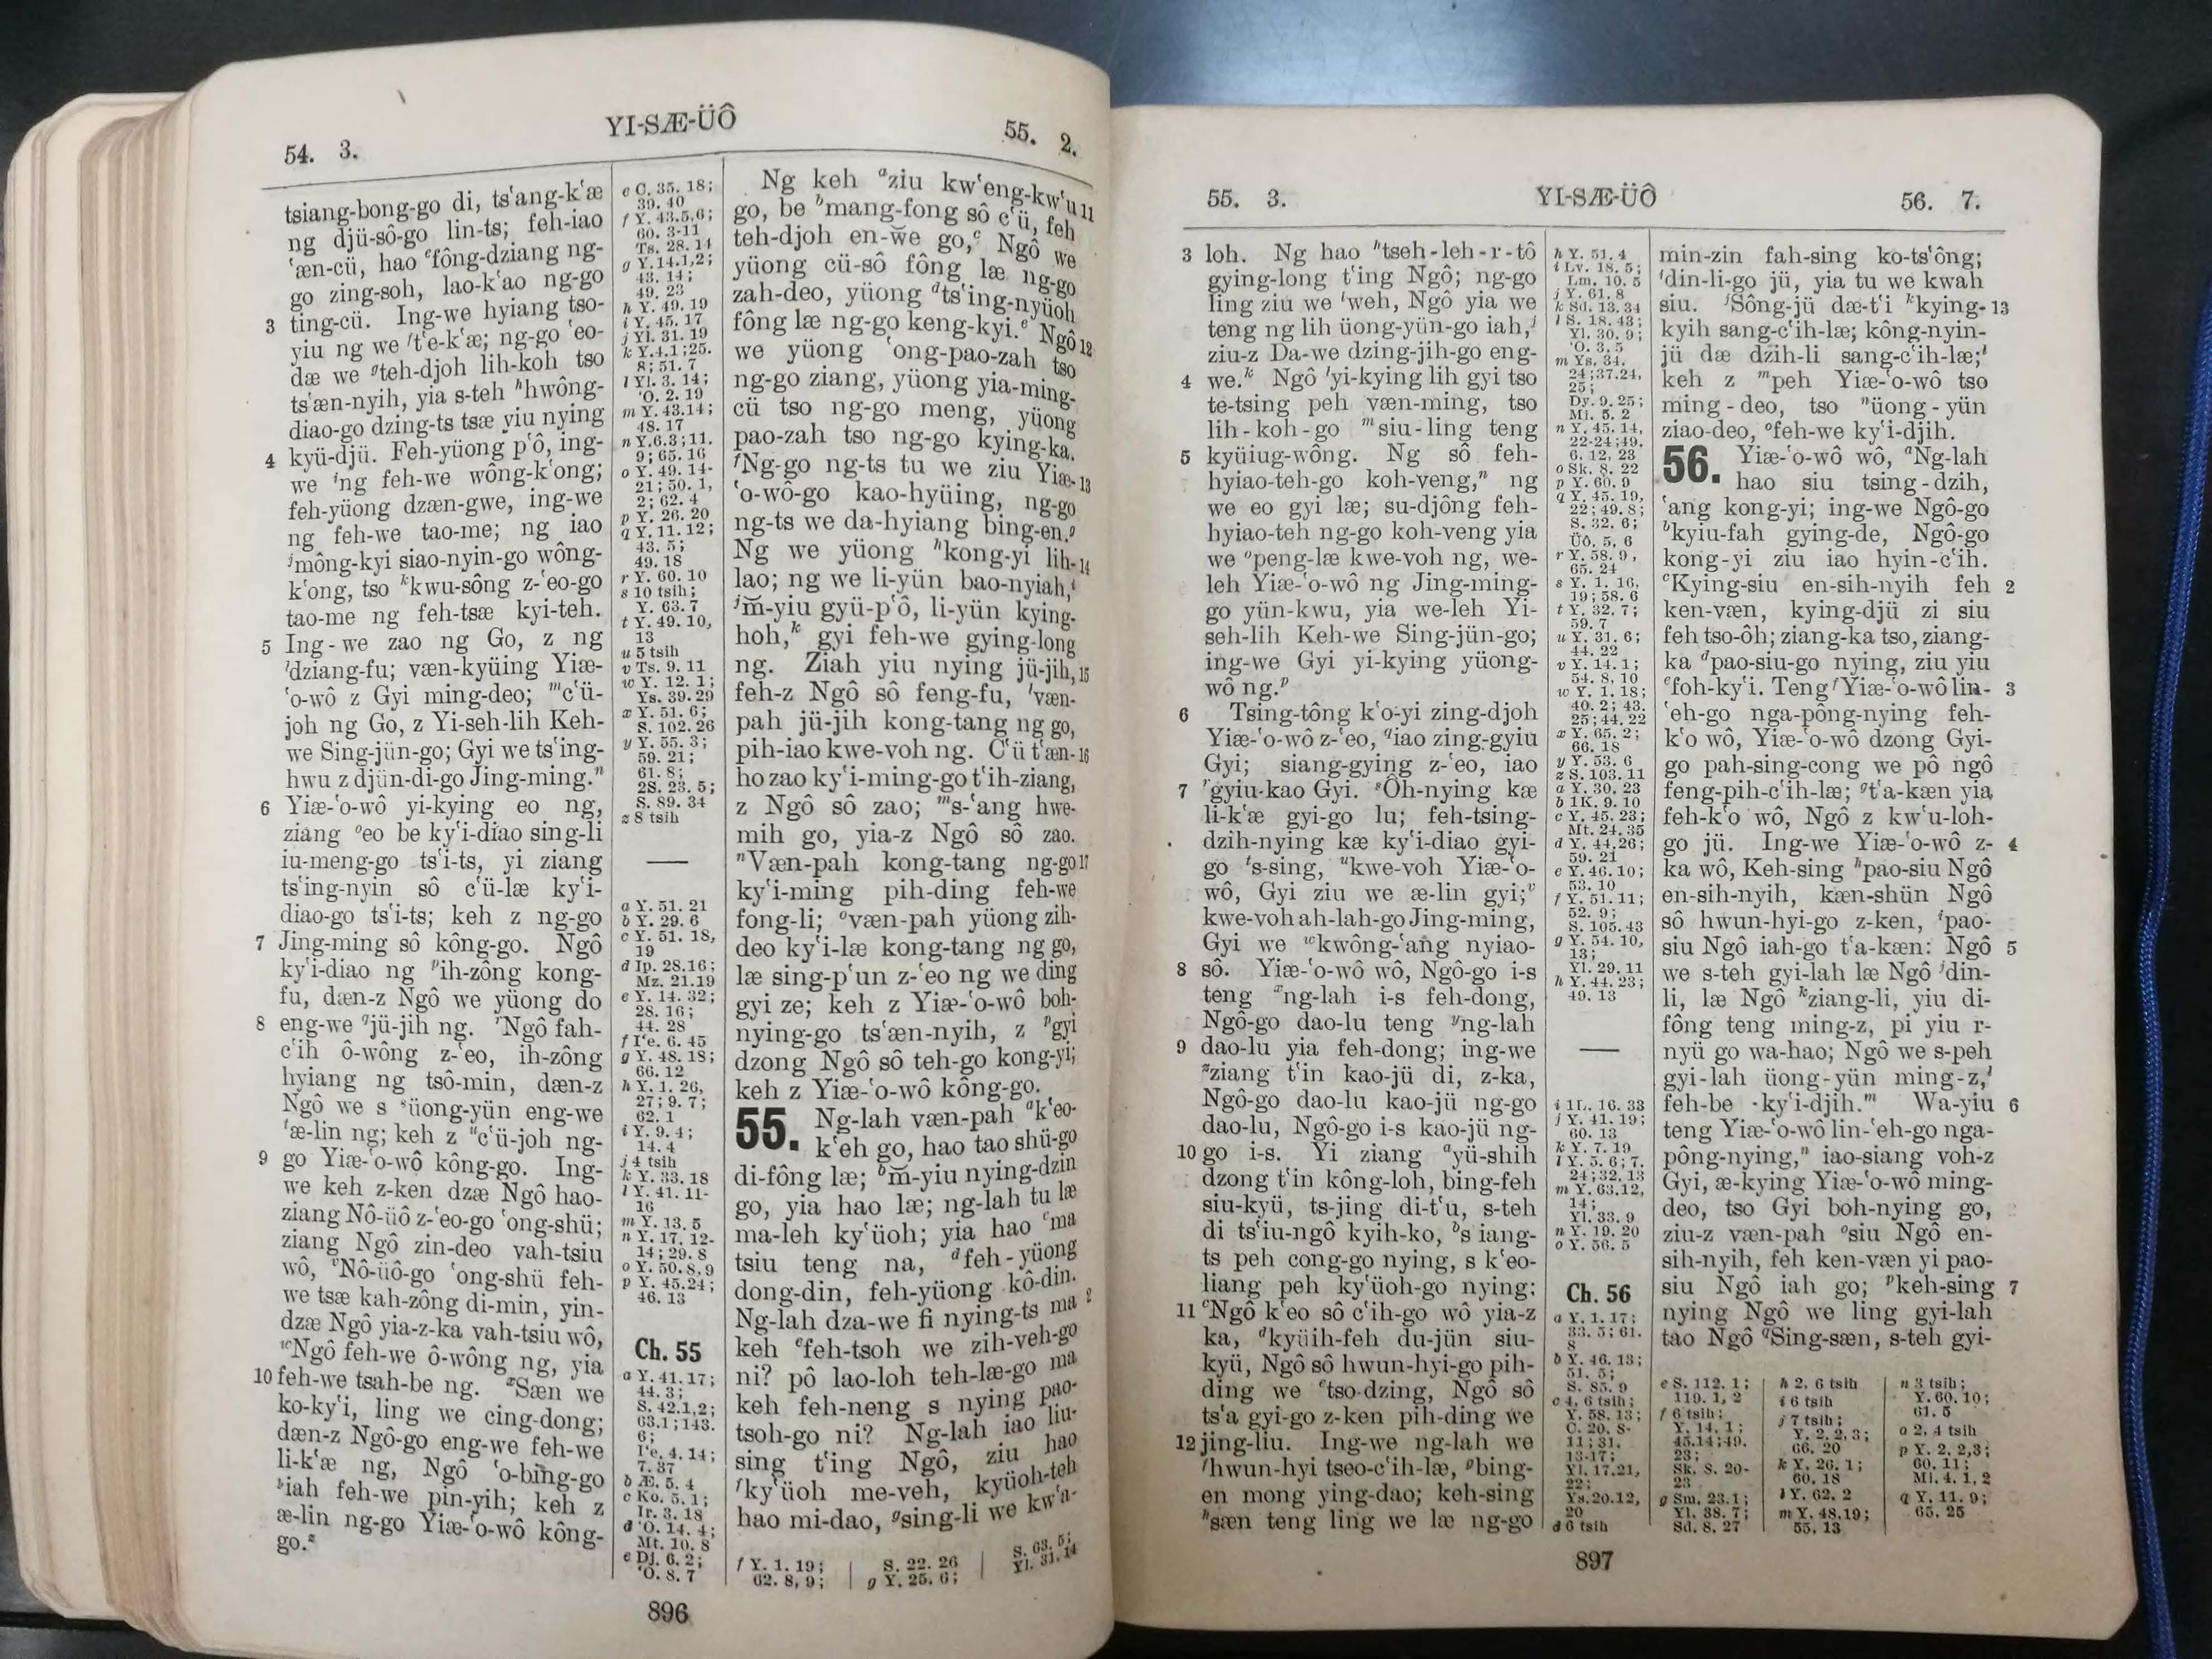 54. 3.
YI-SÆ-ÜÔ
55. 2.
tsiang-bong-go di, ts‘ang-k‘æ
ng djü-sô-go lin-ts; feh-iao
‘æn-cü, hao ᵉfông-dziang ng-
go zing-soh, lao-k‘ao ng-go
3 ting-cü. Ing-we hyiang tso-
yiu ng we ᶠt‘e-k‘æ; ng-go ‘eo-
dæ we ᵍteh-djoh lih-koh tso
ts‘æn-nyih, yia s-teh ʰhwông-
diao-go dzing-ts tsæ yiu nying
4 kyü-djü. Feh-yüong p‘ô, ing-
we ⁱng feh-we wông-k‘ong;
feh-yüong dzæn-gwe, ing-we
ng feh-we tao-me; ng iao
ʲmông-kyi siao-nyin-go wông-
k‘ong, tso ᵏkwu-sông z-‘eo-go
tao-me ng feh-tsæ kyi-teh.
5 Ing-we zao ng Go, z ng
ˡdziang-fu; væn-kyüing Yiæ-
‘o-wô z Gyi ming-deo; ᵐc‘ü-
joh ng Go, z Yi-seh-lih Keh-
we Sing-jün-go; Gyi we ts‘ing-
hwu z djün-di-go Jing-ming.ⁿ
6 Yiæ-‘o-wô yi-kying eo ng,
ziang ᵒeo be ky‘i-diao sing-li
iu-meng-go ts‘i-ts, yi ziang
ts‘ing-nyin sô c‘ü-læ ky‘i-
diao-go ts‘i-ts; keh z ng-go
7 Jing-ming sô kông-go. Ngô
ky‘i-diao ng ᵖih-zông kong-
fu, dæn-z Ngô we yüong do
8 eng-we ᑫjü-jih ng. ʳNgô fah-
c‘ih ô-wông z-‘eo, ih-zông
hyiang ng tsô-min, dæn-z
Ngô we s ˢüong-yün eng-we
ᵗæ-lin ng; keh z ᵘc‘ü-joh ng-
9 go Yiæ-‘o-wô kông-go. Ing-
we keh z-ken dzæ Ngô hao-
ziang Nô-üô z-‘eo-go ‘ong-shü;
ziang Ngô zin-deo vah-tsiu
wô, ᵛNô-üô-go ‘ong-shü feh-
we tsæ kah-zông di-min, yin-
dzæ Ngô yia-z-ka vah-tsiu wô,
ʷNgô feh-we ô-wông ng, yia
10 feh-we tsah-be ng. ˣSæn we
ko-ky‘i, ling we cing-dong;
dæn-z Ngô-go eng-we feh-we
li-k‘æ ng, Ngô ‘o-bing-go
ʸiah feh-we pin-yih; keh z
æ-lin ng-go Yiæ-‘o-wô kông-
go.ᶻ
e C. 35. 18;
39. 40
f Y. 43.5,6;
60. 3-11
Ts. 28. 14
g Y.14.1,2;
43. 14;
49. 23
h Y. 49. 19
i Y. 45. 17
j Yl. 31. 19
k Y.4.1;25.
8; 51. 7
l Yl. 3. 14;
‘O. 2. 19
m Y. 43.14;
48. 17
n Y.6.3;11.
9; 65. 16
o Y. 49. 14-
21; 50. 1,
2; 62. 4
p Y. 26. 20
q Y. 11. 12;
43. 5;
49. 18
r Y. 60. 10
s 10 tsih;
Y. 63. 7
t Y. 49. 10,
13
u 5 tsih
v Ts. 9. 11
w Y. 12. 1;
Ys. 39. 29
x Y. 51. 6;
S. 102. 26
y Y. 55. 3;
59. 21;
61. 8;
2S. 23. 5;
S. 89. 34
z 8 tsih
a Y. 51. 21
b Y. 29. 6
c Y. 51. 18,
19
d Ip. 28.16;
Mz. 21.19
e Y. 14. 32;
28. 16;
44. 28
f I‘e. 6. 45
g Y. 48. 18;
66. 12
h Y. 1. 26,
27; 9. 7;
62. 1
i Y. 9. 4;
14. 4
j 4 tsih
k Y. 33. 18
l Y. 41. 11-
16
m Y. 13. 5
n Y. 17. 12-
14; 29. 8
o Y. 50. 8,9
p Y. 45.24;
46. 13
Ch. 55
a Y. 41. 17;
44. 3;
S. 42.1,2;
63.1;143.
6;
I‘e. 4. 14;
7. 37
b Æ. 5. 4
c Ko. 5. 1;
Ir. 3. 18
d ‘O. 14. 4;
Mt. 10. 8
e Dj. 6. 2;
‘O. 8. 7
Ng keh ᵃziu kw‘eng-kw‘u 11
go, be ᵇmang-fong sô c‘ü, feh
teh-djoh en-we go,ᶜ Ngô we
yüong cü-sô fông læ ng-go
zah-deo, yüong ᵈts‘ing-nyüoh
fông læ ng-go keng-kyi.ᵉ Ngô 12
we yüong ‘ong-pao-zah tso
ng-go ziang, yüong yia-ming-
cü tso ng-go meng, yüong
pao-zah tso ng-go kying-ka.
ᶠNg-go ng-ts tu we ziu Yiæ- 13
‘o-wô-go kao-hyüing, ng-go
ng-ts we da-hyiang bing-en.ᵍ
Ng we yüong ʰkong-yi lih- 14
lao; ng we li-yün bao-nyiah,ⁱ
ʲm̆-yiu gyü-p‘ô, li-yün kying-
hoh,ᵏ gyi feh-we gying-long
ng. Ziah yiu nying jü-jih, 15
feh-z Ngô sô feng-fu, ˡvæn-
pah jü-jih kong-tang ng go,
pih-iao kwe-voh ng. C‘ü t‘æn- 16
ho zao ky‘i-ming-go t‘ih-ziang,
z Ngô sô zao; ᵐs-‘ang hwe-
mih go, yia-z Ngô sô zao.
ⁿVæn-pah kong-tang ng-go 17
ky‘i-ming pih-ding feh-we
fong-li; ᵒvæn-pah yüong zih-
deo ky‘i-læ kong-tang ng go,
læ sing-p‘un z-‘eo ng we ding
gyi ze; keh z Yiæ-‘o-wô boh-
nying-go ts‘æn-nyih, z ᵖgyi
dzong Ngô sô teh-go kong-yi;
keh z Yiæ-‘o-wô kông-go.
55. Ng-lah væn-pah ᵃk‘eo-
k‘eh go, hao tao shü-go
di-fông læ; ᵇm̆-yiu nying-dzin
go, yia hao læ; ng-lah tu læ
ma-leh ky‘üoh; yia hao ᶜma
tsiu teng na, ᵈfeh-yüong
dong-din, feh-yüong kô-din.
Ng-lah dza-we fi nying-ts ma 2
keh ᵉfeh-tsoh we zih-veh-go
ni? pô lao-loh teh-læ-go ma
keh feh-neng s nying pao-
tsoh-go ni? Ng-lah iao liu-
sing t‘ing Ngô, ziu hao
ᶠky‘üoh me-veh, kyüoh-teh
hao mi-dao, ᵍsing-li we kw‘a-
f Y. 1. 19;
62. 8, 9;
S. 22. 26
g Y. 25. 6;
S. 63. 5;
Yl. 31. 14
896
55. 3.
YI-SÆ-ÜÔ
56. 7.
3 loh. Ng hao ʰtseh-leh-r-tô
gying-long t‘ing Ngô; ng-go
ling ziu we ⁱweh, Ngô yia we
teng ng lih üong-yün-go iah,ʲ
ziu-z Da-we dzing-jih-go eng-
4 we.ᵏ Ngô ˡyi-kying lih gyi tso
te-tsing peh væn-ming, tso
lih-koh-go ᵐsiu-ling teng
5 kyüiug-wông. Ng sô feh-
hyiao-teh-go koh-veng,ⁿ ng
we eo gyi læ; su-djông feh-
hyiao-teh ng-go koh-veng yia
we ᵒpeng-læ kwe-voh ng, we-
leh Yiæ-‘o-wô ng Jing-ming-
go yün-kwu, yia we-leh Yi-
seh-lih Keh-we Sing-jün-go;
ing-we Gyi yi-kying yüong-
wô ng.ᵖ
6 Tsing-tông k‘o-yi zing-djoh
Yiæ-‘o-wô z-‘eo, ᑫiao zing-gyiu
Gyi; siang-gying z-‘eo, iao
7 ʳgyiu-kao Gyi. ˢÔh-nying kæ
li-k‘æ gyi-go lu; feh-tsing-
dzih-nying kæ ky‘i-diao gyi-
go ᵗs-sing, ᵘkwe-voh Yiæ-‘o-
wô, Gyi ziu we æ-lin gyi;ᵛ
kwe-voh ah-lah-go Jing-ming,
Gyi we ʷkwông-‘ang nyiao-
8 sô. Yiæ-‘o-wô wô, Ngô-go i-s
teng ˣng-lah i-s feh-dong,
Ngô-go dao-lu teng ʸng-lah
9 dao-lu yia feh-dong; ing-we
ᶻziang t‘in kao-jü di, z-ka,
Ngô-go dao-lu kao-jü ng-go
dao-lu, Ngô-go i-s kao-jü ng-
10 go i-s. Yi ziang ᵃyü-shih
dzong t‘in kông-loh, bing-feh
siu-kyü, ts-jing di-t‘u, s-teh
di ts‘iu-ngô kyih-ko, ᵇs iang-
ts peh cong-go nying, s k‘eo-
liang peh ky‘üoh-go nying:
11 ᶜNgô k‘eo sô c‘ih-go wô yia-z
ka, ᵈkyüih-feh du-jün siu-
kyü, Ngô sô hwun-hyi-go pih-
ding we ᵉtso-dzing, Ngô sô
ts‘a gyi-go z-ken pih-ding we
12 jing-liu. Ing-we ng-lah we
ᶠhwun-hyi tseo-c‘ih-læ, ᵍbing-
en mong ying-dao; keh-sing
ʰsæn teng ling we læ ng-go
h Y. 51. 4
i Lv. 18. 5;
Lm. 10. 5
j Y. 61. 8
k Sd. 13. 34
l S. 18. 43;
Yl. 30. 9;
‘O. 3. 5
m Ys. 34.
24;37.24,
25;
Dy. 9. 25;
Mi. 5. 2
n Y. 45. 14,
22-24;49.
6, 12, 23
o Sk. 8. 22
p Y. 60. 9
q Y. 45. 19,
22; 49. 8;
S. 32. 6;
Üô. 5. 6
r Y. 58. 9,
65. 24
s Y. 1. 16,
19; 58. 6
t Y. 32. 7;
59. 7
u Y. 31. 6;
44. 22
v Y. 14. 1;
54. 8, 10
w Y. 1. 18;
40. 2; 43.
25; 44. 22
x Y. 65. 2;
66. 18
y Y. 53. 6
z S. 103. 11
a Y. 30. 23
b 1K. 9. 10
c Y. 45. 23;
Mt. 24. 35
d Y. 44.26;
59. 21
e Y. 46. 10;
53. 10
f Y. 51. 11;
52. 9;
S. 105. 43
g Y. 54. 10,
13;
Yl. 29. 11
h Y. 44. 23;
49. 13
i 1L. 16. 33
j Y. 41. 19;
60. 13
k Y. 7. 19
l Y. 5. 6; 7.
24; 32. 13
m Y. 63.12,
14;
Yl. 33. 9
n Y. 19. 20
o Y. 56. 5
Ch. 56
a Y. 1. 17;
33. 5; 61.
8
b Y. 46. 13;
51. 5;
S. 85. 9
c 4, 6 tsih;
Y. 58. 13;
C. 20. 8-
11; 31.
13-17;
Yl. 17.21,
22;
Ys.20.12,
20
d 6 tsih
min-zin fah-sing ko-ts‘ông;
ⁱdin-li-go jü, yia tu we kwah
siu. ʲSông-jü dæ-t‘i ᵏkying- 13
kyih sang-c‘ih-læ; kông-nyin-
jü dæ dzih-li sang-c‘ih-læ;ˡ
keh z ᵐpeh Yiæ-‘o-wô tso
ming-deo, tso ⁿüong-yün
ziao-deo, ᵒfeh-we ky‘i-djih.
56. Yiæ-‘o-wô wô, ᵃNg-lah
hao siu tsing-dzih,
‘ang kong-yi; ing-we Ngô-go
ᵇkyiu-fah gying-de, Ngô-go
kong-yi ziu iao hyin-c‘ih.
ᶜKying-siu en-sih-nyih feh 2
ken-væn, kying-djü zi siu
feh tso-ôh; ziang-ka tso, ziang-
ka ᵈpao-siu-go nying, ziu yiu
ᵉfoh-ky‘i. Teng ᶠYiæ-‘o-wô lin- 3
‘eh-go nga-pông-nying feh-
k‘o wô, Yiæ-‘o-wô dzong Gyi-
go pah-sing-cong we pô ngô
feng-pih-c‘ih-læ; ᵍt‘a-kæn yia
feh-k‘o wô, Ngô z kw‘u-loh-
go jü. Ing-we Yiæ-‘o-wô z- 4
ka wô, Keh-sing ʰpao-siu Ngô
en-sih-nyih, kæn-shün Ngô
sô hwun-hyi-go z-ken, ⁱpao-
siu Ngô iah-go t‘a-kæn: Ngô 5
we s-teh gyi-lah læ Ngô ʲdin-
li, læ Ngô ᵏziang-li, yiu di-
fông teng ming-z, pi yiu r-
nyü go wa-hao; Ngô we s-peh
gyi-lah üong-yün ming-z,ˡ
feh-be ky‘i-djih.ᵐ Wa-yiu 6
teng Yiæ-‘o-wô lin-‘eh-go nga-
pông-nying,ⁿ iao-siang voh-z
Gyi, æ-kying Yiæ-‘o-wô ming-
deo, tso Gyi boh-nying go,
ziu-z væn-pah ᵒsiu Ngô en-
sih-nyih, feh ken-væn yi pao-
siu Ngô iah go; ᵖkeh-sing 7
nying Ngô we ling gyi-lah
tao Ngô ᑫSing-sæn, s-teh gyi-
e S. 112. 1;
119. 1, 2
f 6 tsih;
Y. 14. 1;
45.14;49.
23;
Sk. 8. 20-
23
g Sm. 23.1;
Yl. 38. 7;
Sd. 8. 27
h 2, 6 tsih
i 6 tsih
j 7 tsih;
Y. 2. 2, 3;
66. 20
k Y. 26. 1;
60. 18
l Y. 62. 2
m Y. 48.19;
55. 13
n 3 tsih;
Y. 60. 10;
61. 5
o 2, 4 tsih
p Y. 2. 2,3;
60. 11;
Mi. 4. 1, 2
q Y. 11. 9;
65. 25
897